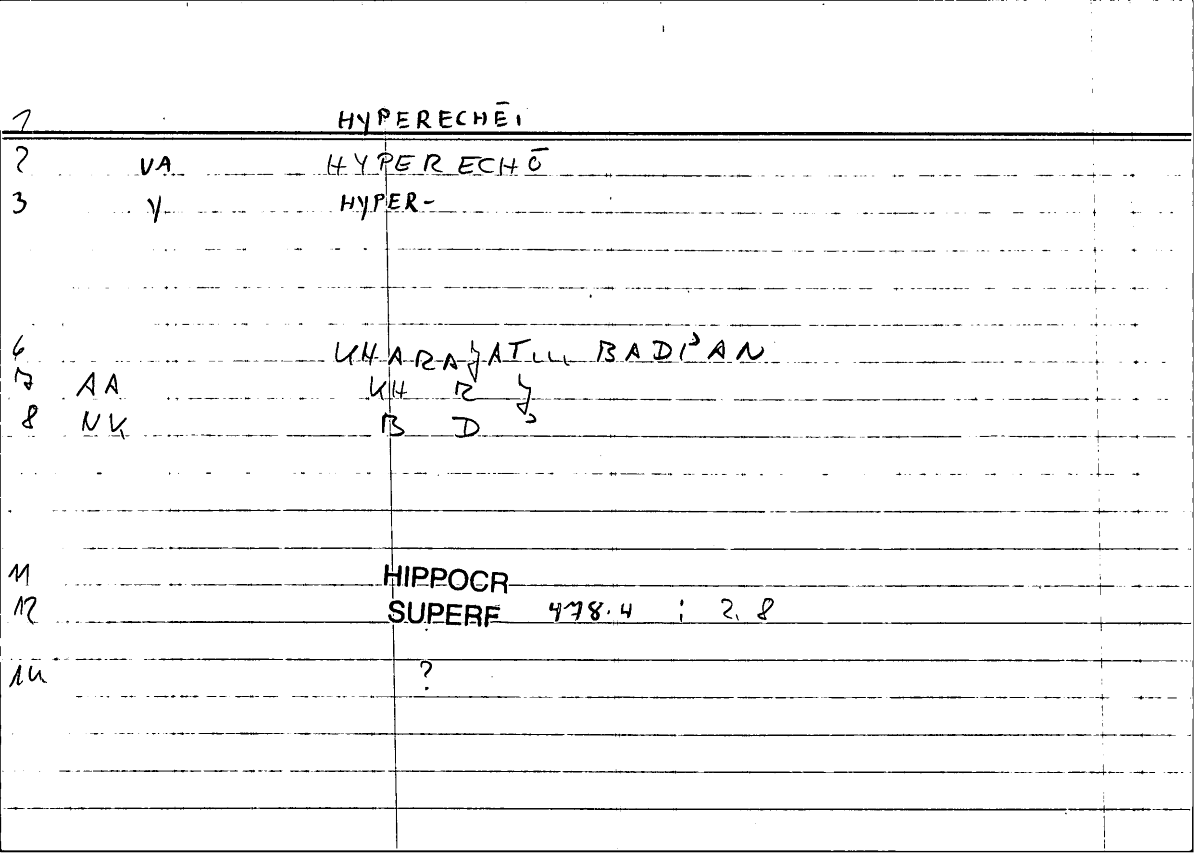 1 HYPERECHĒI
2 VA HYPERECHŌ
3 Y HYPER-
6 KHARAǰAT... BADIʾAN
7 AA KH R ǰ
8 NK B D ʾ
11 HIPPOCR
12 SUPERF 478.4 ; 2.8
14 ?